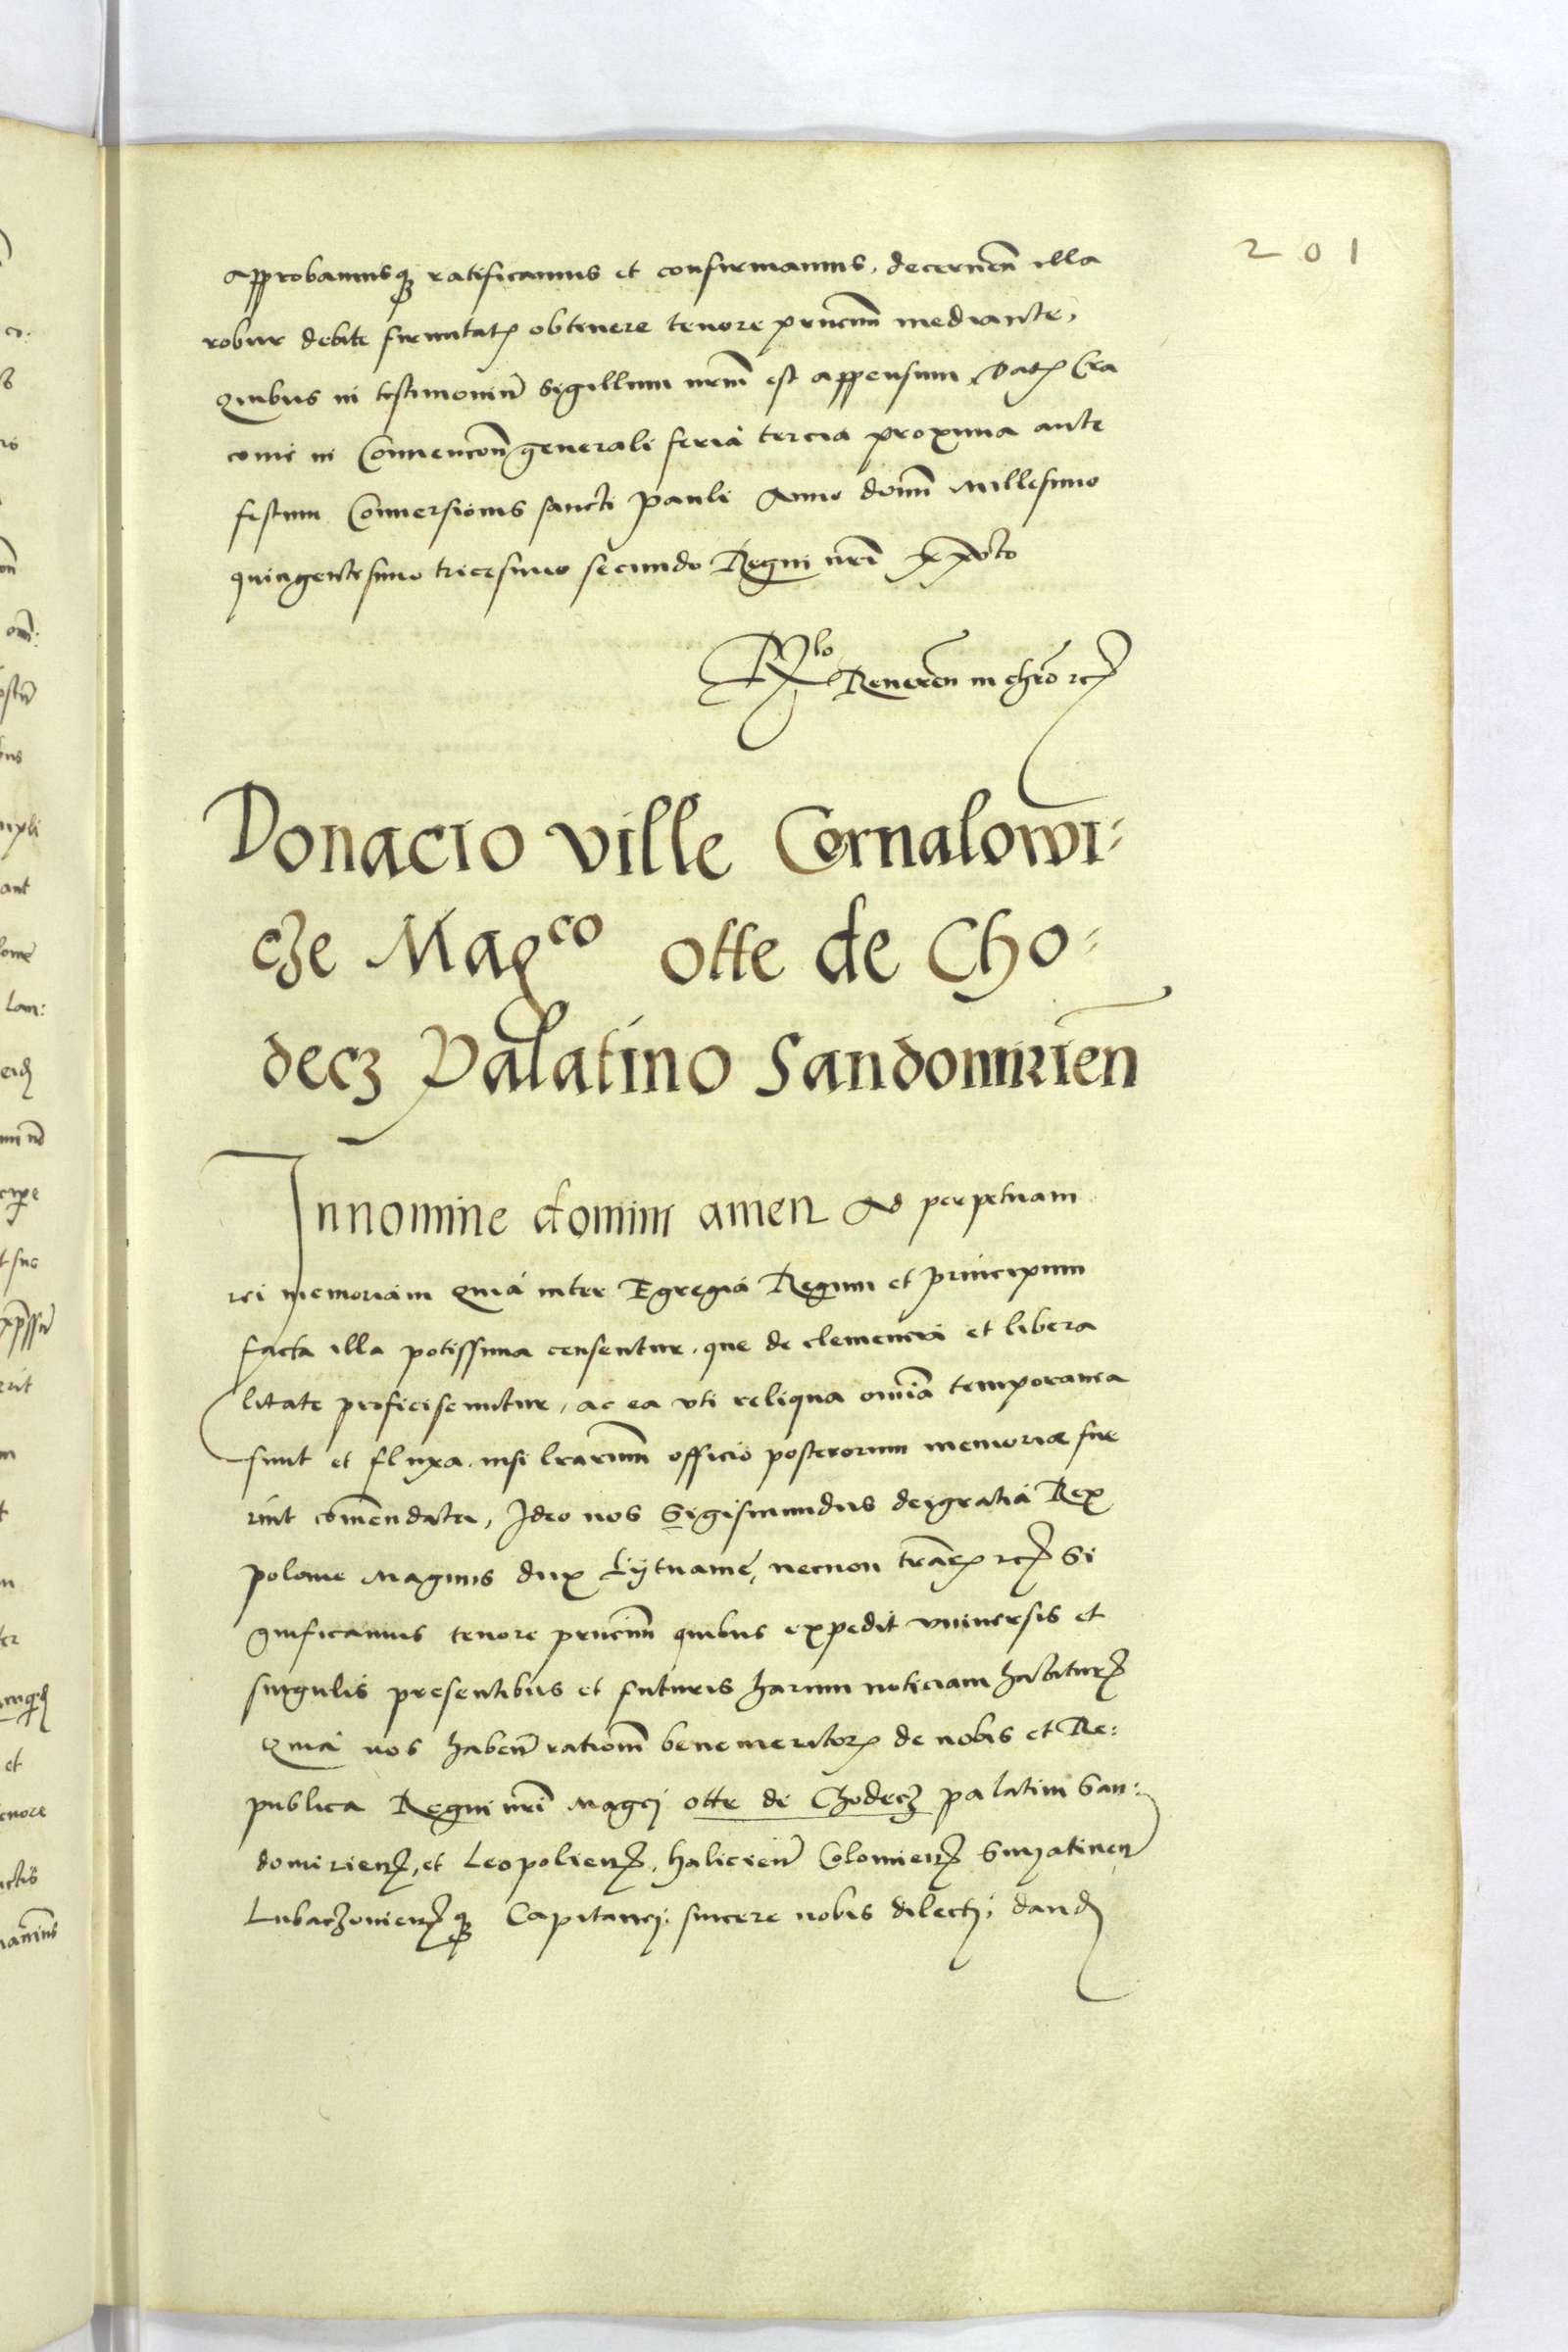 201
approbamusq3 ratificamus et confirmamus, decernen̄ illa
robur debite firmitat͛ obtinere tenore pr̄ncium mediante,
Quibus in testimoniu͛ Sigillum nr̄m est appensum. Dat͛ Cra
comi in Convencōn generali feria tercia proxima ante
festum Conversionis sancti Pauli Anno domī Millesimo
quingentesimo tricesimo secundo Regni nr̄i
Reveren̄ in chr̄o
Donacio ville Cornalowi⸗
cze Mag͏ᶜᵒ otte de Cho⸗
decz Palatino Sandomirien̄
In nomine domini amen Ad perpetuam
rei memoriam Quia inter Egregia Regum et principum
facta illa potissima censentur, que de clemencia et libera
litate proficiscuntur, ac ea vti reliqua omīa temporanea
sunt et fluxa. nisi lr̄arum officio posterorum memoriæ fue
rint com̄endata, Ideo nos Sigismundus dei gratia Rex
polonie Magnus dux Lytuanie, necnon trār͛ rc͛ Si
gnificamus tenore pr̄ncium quibus expedit vniversis et
singulis presentibus et futuris harum noticiam habitur͛
Quia nos haben̄ rationem benemeritor͛ de nobis et Re:
publica Regni nr̄i Magci otte de Chodecz palatini San:
domirien͛, et Leopolien͛, halicien̄ Colomien͛ Snyatinen̄
Lubaczovien͛q3 Capitanei, sincere nobis dilecti, dand͛